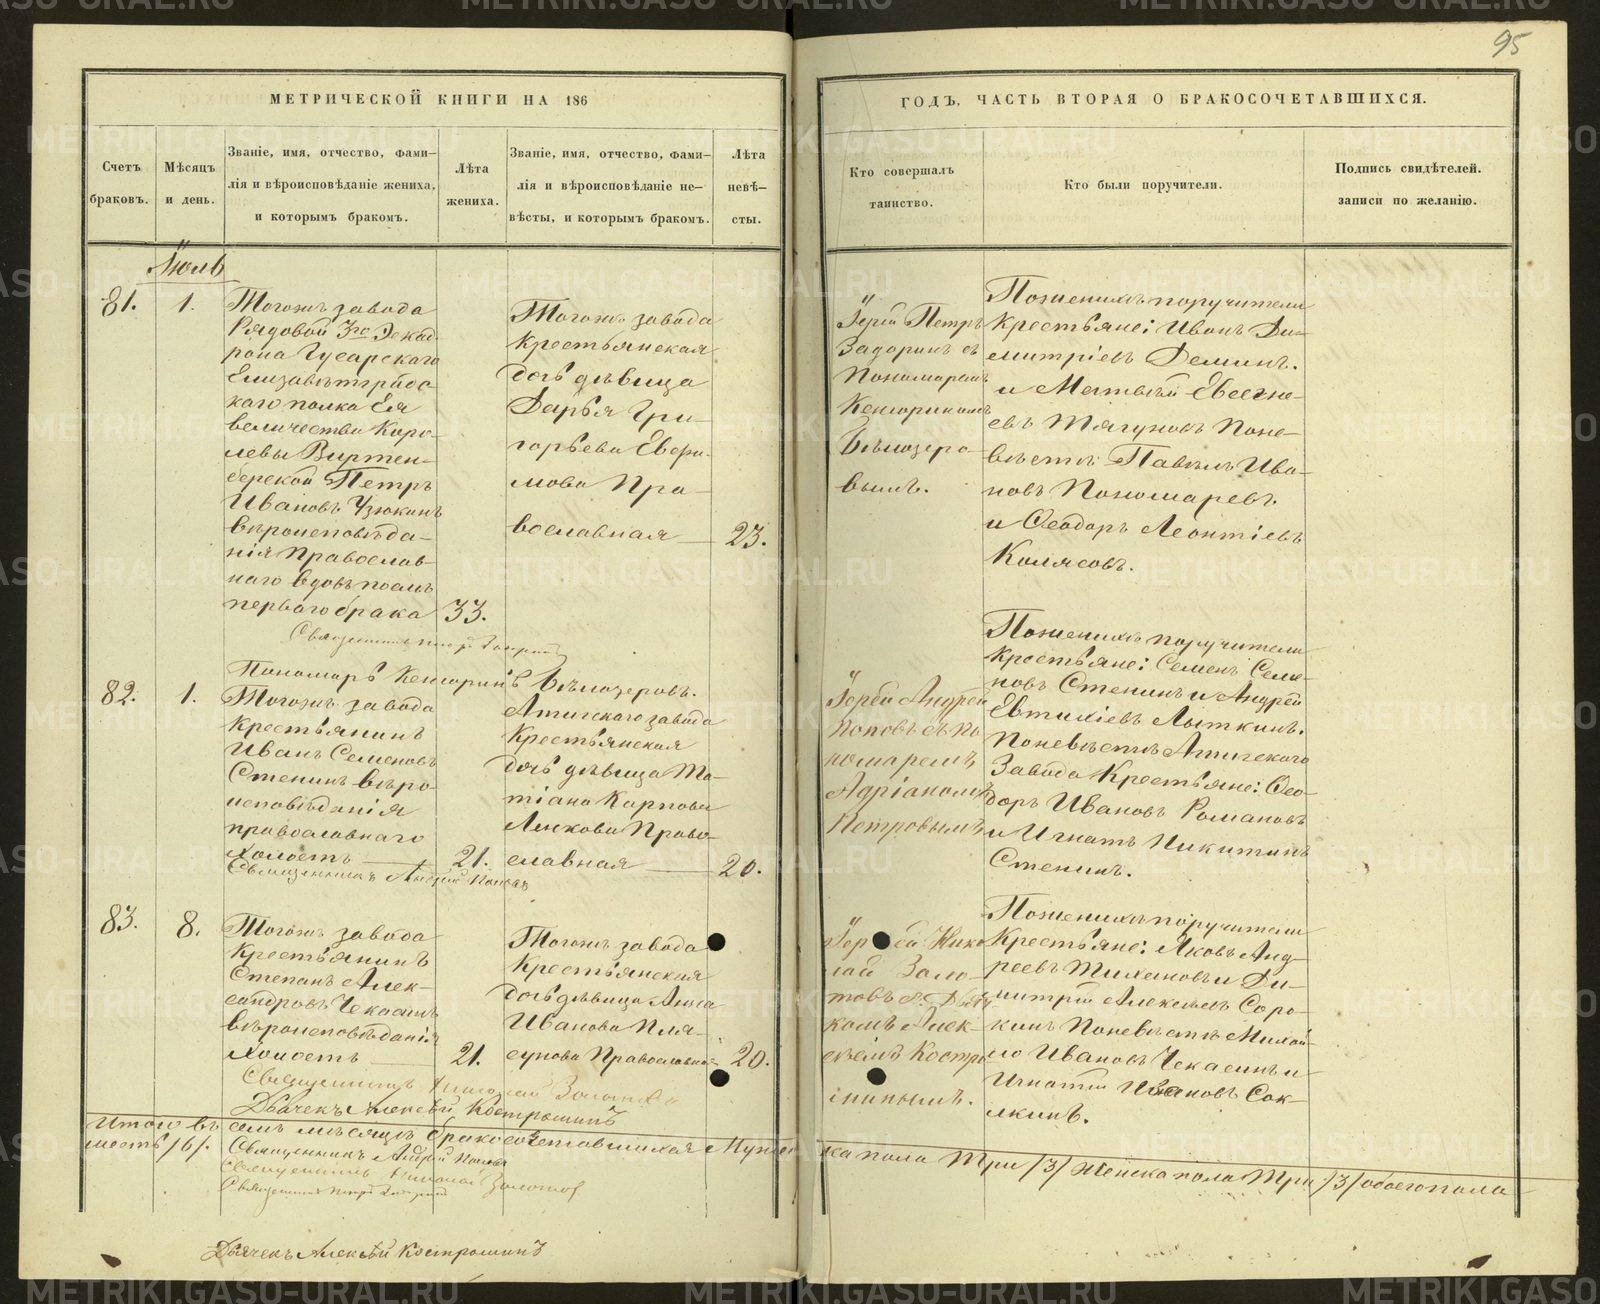 95
МЕТРИЧЕСКОЙ КНИГИ НА 186
ГОДЪ, ЧАСТЬ ВТОРАЯ О БРАКОСОЧЕТАВШИХСЯ.
Счетъ
браковъ.
Мѣсяцъ
и день.
Званіе, имя, отчество, фами-
лія и вѣроисповѣданіе жениха,
и которымъ бракомъ.
Лѣта
жениха.
Званіе, имя, отчество, фами-
лія и вѣроисповѣданіе не-
вѣсты, и которымъ бракомъ.
Лѣта
невѣ-
сты.
Кто совершалъ
таинство.
Кто были поручители.
Подпись свидѣтелей.
записи по желанію.
Июль
81.
1.
Тогожъ завода
Рядовой 3го Эскад-
рона Гусарскаго
Елизаветград-
скаго полка Ея
величества Коро-
левы Виртем-
берской Петръ
Ивановъ Узюкинъ
вѣроисповѣда-
нія Православ-
наго вдовъ послѣ
перваго брака
33.
Тогожъ завода
Крестьянская
дочь дѣвица
Дарья Гри-
горьева Ефи-
мова Пра-
вославная
23.
Іерей Петръ
Задоринъ съ
Пономаремъ
Кенсориномъ
Бѣлозеро-
вымъ.
По женихѣ поручители
Крестьяне: Иванъ Ди-
митріевъ Деминъ.
и Матвѣй Евсегне-
евъ Тягуновъ По не-
вѣстѣ Павелъ Ива-
новъ Пономаревъ.
и Ѳеодоръ Леонтіевъ
Колясовъ.
Священникъ Петръ Задоринъ
Пономарь Кенсоринъ Бѣлозеровъ.
82.
1.
Тогожъ завода
крестьянинъ
Иванъ Семеновъ
Стенинъ вѣро-
исповѣданія
православнаго
Холостъ
21.
Атигскаго завода
Крестьянская
дочь дѣвица Та-
тіана Карпова
Правo-
славная
20.
Іерей Андрей
Поповъ съ По-
номаремъ
Адріаномъ
Петровымъ
По женихѣ поручители
Крестьяне: Семенъ Семе-
новъ Стенинъ и Андрей
Евтихіевъ Лыткинъ.
По невѣстѣ Атигскаго
Завода Крестьяне: Ѳео-
доръ Ивановъ Романовъ
и Игнатъ Никитинъ
Стенинъ.
Священникъ Андрей Поповъ
83.
8.
Тогожъ завода
Крестьянинъ
Степанъ Алек-
сандровъ Чекасинъ
вѣроисповѣданія
Холостъ
21.
Тогожъ завода
Крестьянская
дочь дѣвица Анна
Иванова Пля-
сунова Православная
20.
Іерей Нико-
лай Золо-
товъ съ Дьяч-
комъ Алек-
сѣемъ Костро-
мнинымъ.
По женихѣ поручители
Крестьяне: Яковъ Анд-
реевъ Тихановъ и Ди-
митрій Алексѣевъ Соро-
кинъ По невѣстѣ Михай-
ло Ивановъ Чекасинъ и
Игнатій Ивановъ Сок-
лкинъ.
Священникъ Николай Золотовъ
Дьячекъ Алексѣй Костроминъ
Итого въ семъ мѣсяцѣ бракосочетавшихся Мужес-
ка пола Три /3/ Женска пола Три /3/ обоего пола
шесть /6/.
Священникъ Андрей Поповъ
Священникъ Николай Золотов
Священникъ Петръ Задоринъ
Дьячекъ Алексѣй Костроминъ
METRIKI.GASO-URAL.RU